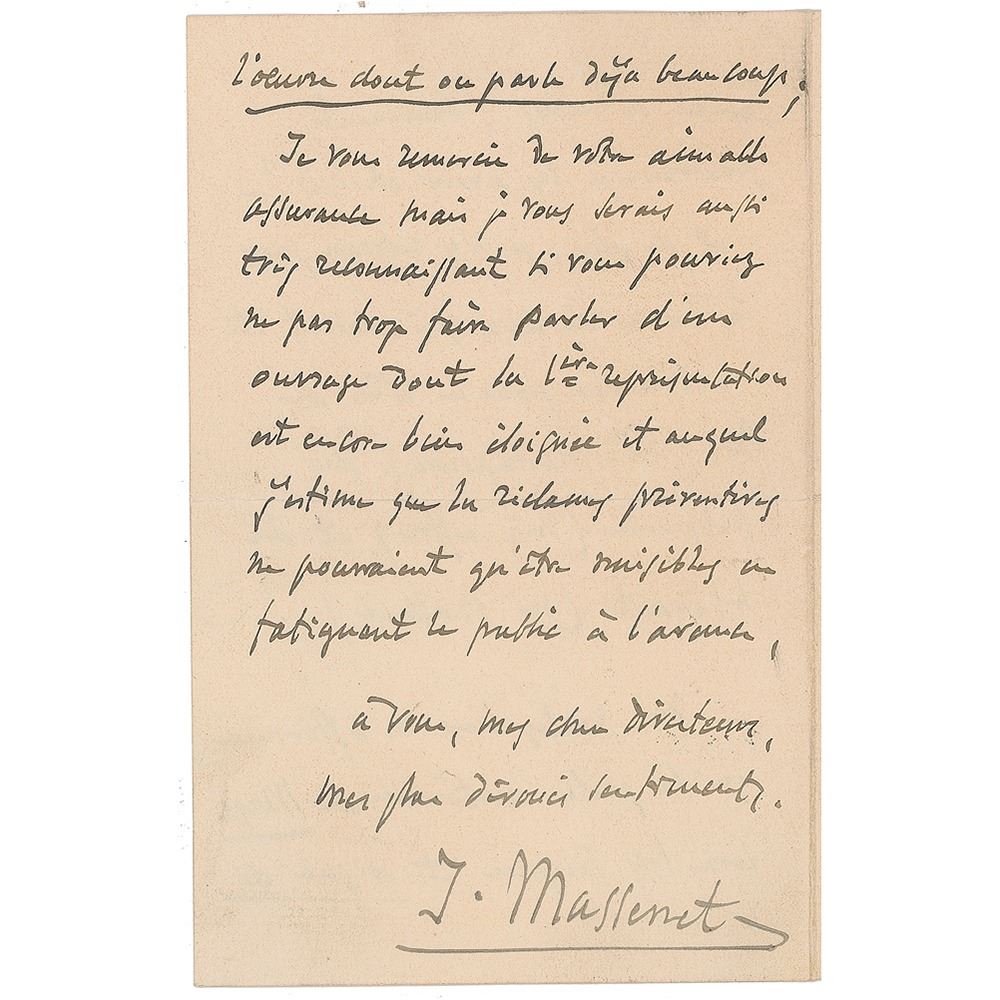 l'oeuvre dont on parle déjà beaucoup,
Je vous remercie de votre aimable
assurance mais je vous serais aussi
très reconnaissant si vous pouviez
ne pas trop faire parler d'un
ouvrage dont la 1ère représentation
est encore bien éloignée et auquel
j'estime que les réclames préventives
ne pourraient qu'être nuisibles en
fatiguant le public à l'avance,
à vous, mes chers directeurs,
mes plus dévoués sentiments.
J. Massenet